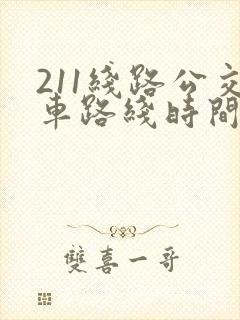 211綫路公交
車路綫時間
雙喜一哥